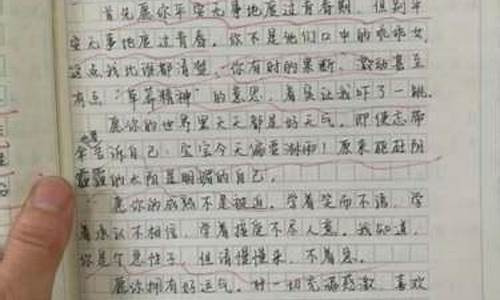 首先愿你平安无事地度过青春期，但别平
安无事地度过青春。你不是他们口中的乖乖女，
这点我比谁都清楚。你有时的果断、激动甚至
有点“草莽精神”的意思，着实让我吓了一跳。
愿你的世界里天天都是好天气。即使忘带
伞也告诉自己：宝宝今天偏要淋雨！原来能赶阴
霾的太阳是明媚的自己。
愿你的成熟不是被迫，学着笑而不语，学
着承认不相信，学着接受不尽人意。我知道，
你是个急性子，但请慢慢来，不着急。
愿你拥有好运气。对一切充满感激，喜欢